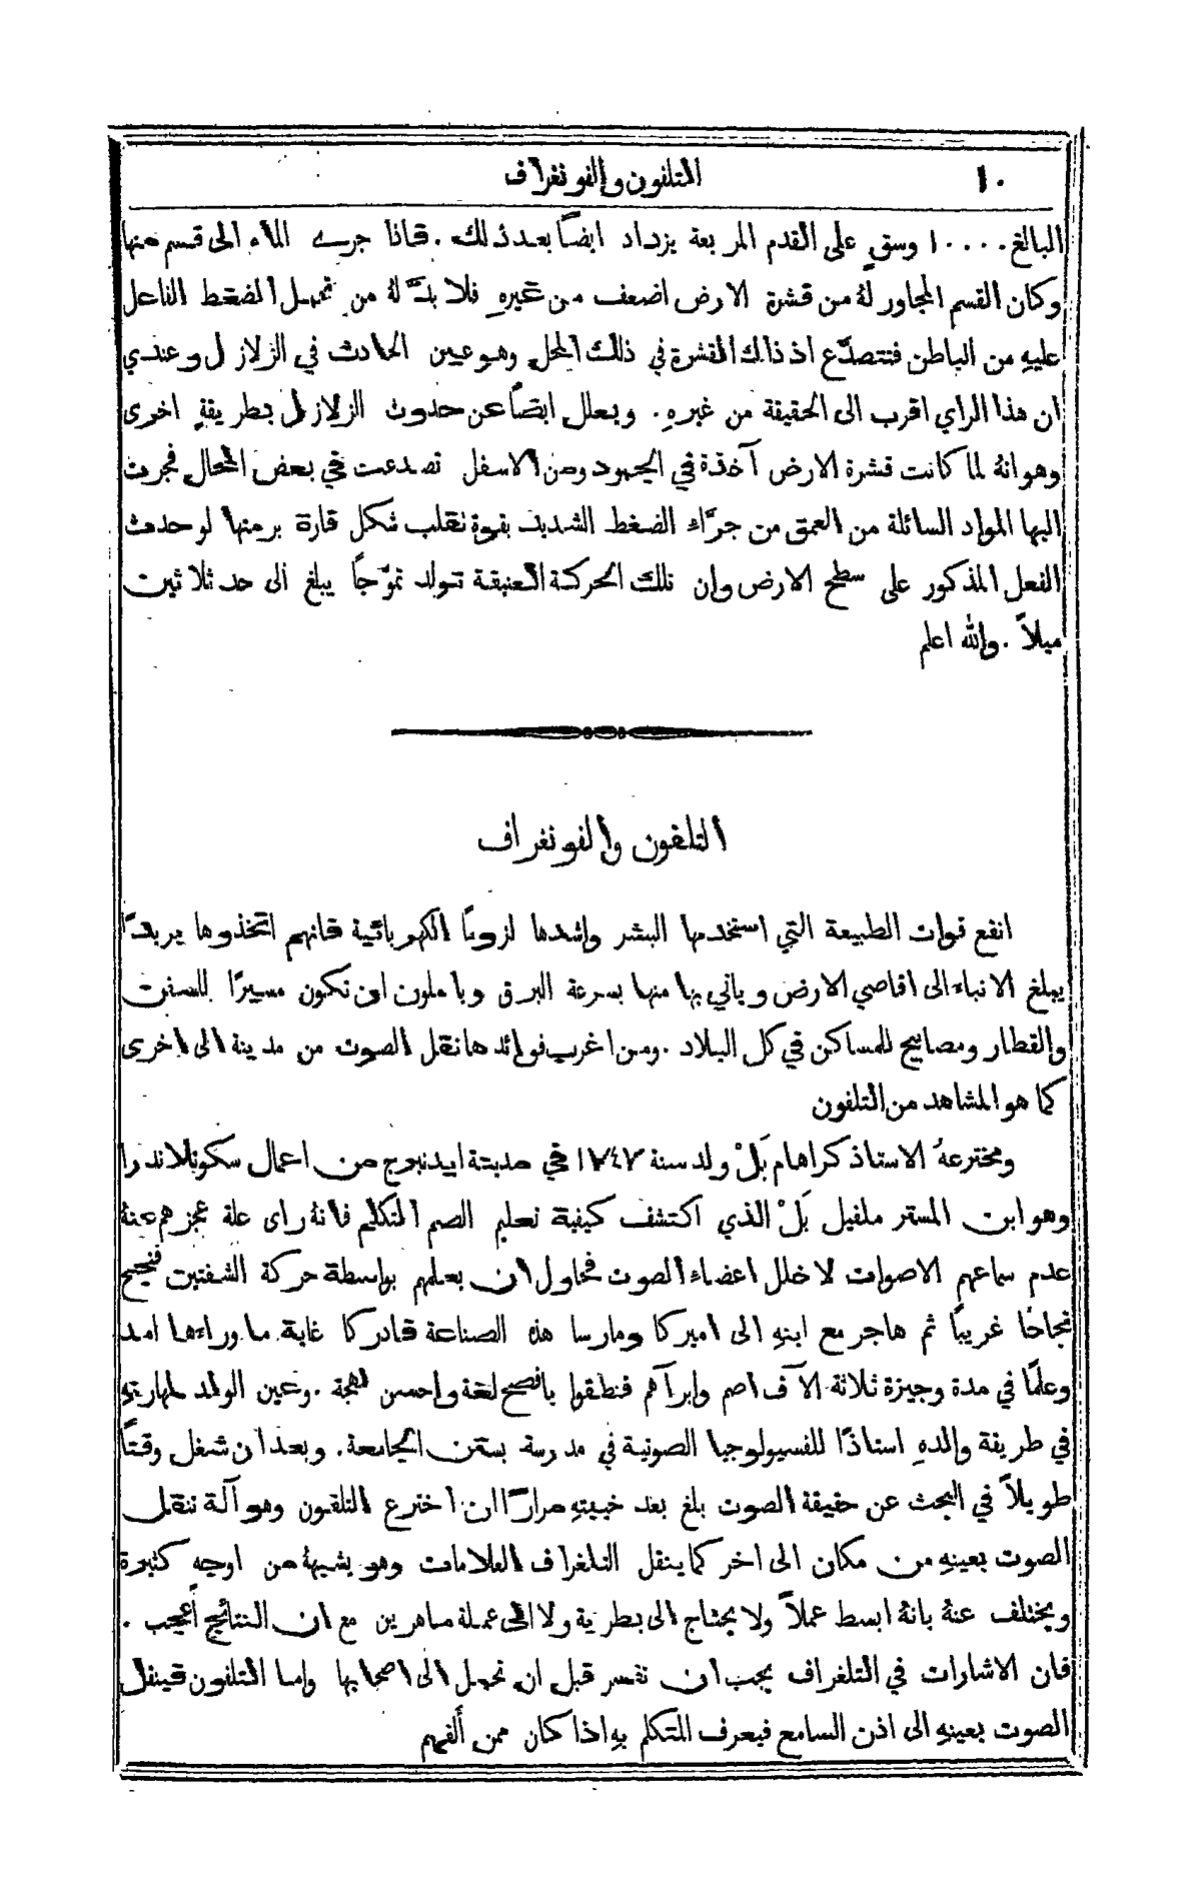 ١٠ التلفون والفونغراف
البالغ ١٠٠٠٠ وسقٍ على القدم المربعة يزداد ايضاً بعد ذلك. فاذا جرى الماء الى قسم منها
وكان القسم المجاور لهُ من قشرة الارض اضعف من غيرهِ فلا بدَّ لهُ من تحمل الضغط الفاعل
عليهِ من الباطن فتتصدَّع اذ ذاك القشرة في ذلك المحل وهو عين الحادث في الزلازل وعندي
ان هذا الراي اقرب الى الحقيقة من غيرهِ. ويعلل ايضاً عن حدوث الزلازل بطريقةٍ اخرى
وهو انهُ لما كانت قشرة الارض آخذة في الجمود ومن الاسفل تصدعت في بعض المحال فجرت
اليها المواد السائلة من العمق من جرَّاء الضغط الشديد بقوة تقلب شكل قارة برمتها لو حدث
الفعل المذكور على سطح الارض وان تلك الحركة العنيفة تولد تموُّجاً يبلغ الى حد ثلاثين
ميلاً. والله اعلم
التلفون والفونغراف
انفع قوات الطبيعة التي استخدمها البشر واشدها لزوماً الكهربائية فانهم اتخذوها بريداً
يبلغ الانباء الى اقاصي الارض وياتي بها منها بسرعة البرق وياملون ان تكون مسيرًا للسفن
والقطار ومصابيح للمساكن في كل البلاد. ومن اغرب فوائدها نقل الصوت من مدينة الى اخرى
كما هو المشاهد من التلفون
ومخترعهُ الاستاذ كراهام بَلْ ولد سنة ١٧٤٧ في مدينة ايدنبرج من اعمال سكوتلاندرا
وهو ابن المستر ملفيل بَلْ الذي اكتشف كيفية تعليم الصم التكلم فانهُ راى علة عجزهم عنهُ
عدم سماعهم الاصوات لا خلل اعضاء الصوت فحاول ان يعلمهم بواسطة حركة الشفتين فنجح
نجاحًا غريبًا ثم هاجر مع ابنهِ الى اميركا ومارسا هذه الصناعة فادركا غاية ما وراءها امد
وعلَّما في مدة وجيزة ثلاثة آلاف اصم وابرآهم فنطقوا بافصح لغة واحسن لهجة. وعين الولد لمهارتهِ
في طريقة والدهِ استاذًا للفسيولوجيا الصوتية في مدرسة بستن الجامعة. وبعد ان شغل وقتًا
طويلاً في البحث عن حقيقة الصوت بلغ بعد خيبتهِ مرارًا ان اخترع التلفون وهو آلة تنقل
الصوت بعينهِ من مكان الى اخر كما ينقل التلغراف العلامات وهو يشبههُ من اوجهٍ كثيرة
ويختلف عنهُ بانهُ ابسط عملاً ولا يحتاج الى بطرية ولا الى عملة ماهرين مع ان النتائج أعجب.
فان الاشارات في التلغراف يجب ان تفسر قبل ان تحمل الى اصحابها واما التلفون فينقل
الصوت بعينهِ الى اذن السامع فيعرف المتكلم بهِ اذا كان ممن ألفهم